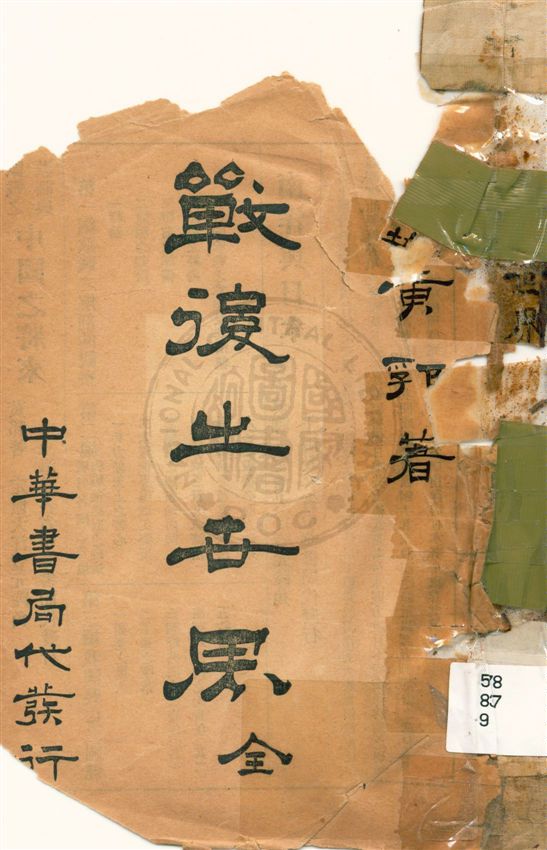 黃郛著
戰後之世界 全
中華書局代發行
58
87
9